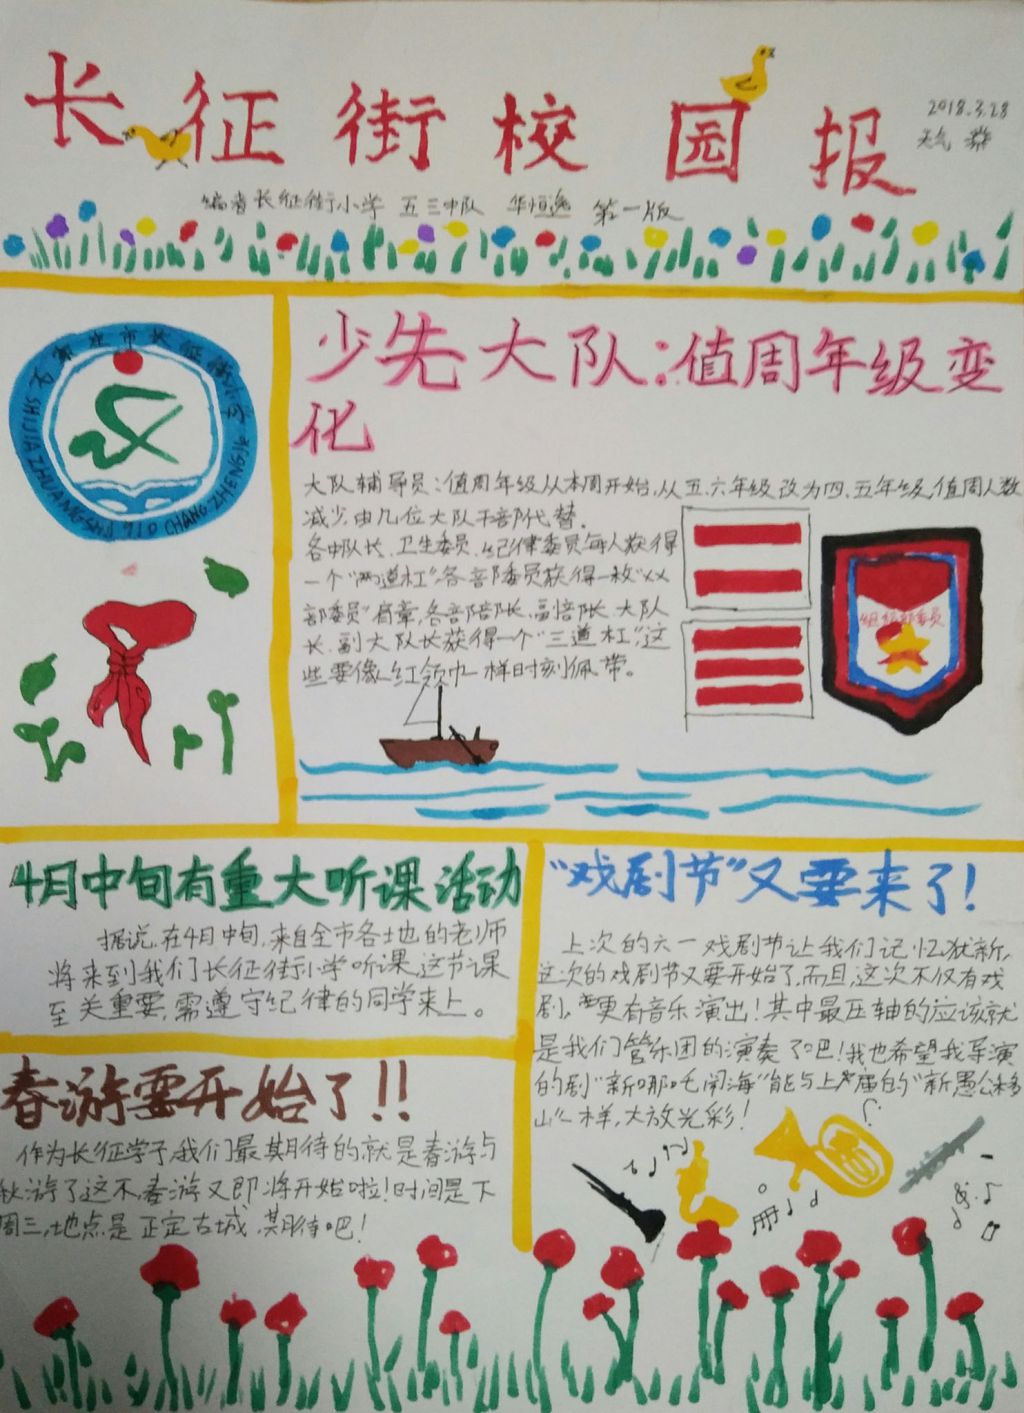 长征街校园报
2018.3.28
天气
编者长征街小学 五三中队 华恒逸 第一版
石家庄市长征街小学
SHIJIAZHUANGSHI CHANGZHENGJIE
少先大队:值周年级变
化
大队辅导员:值周年级从本周开始,从五.六年级改为四.五年级,值周人数
减少,由几位大队干部代替.
各中队长、卫生委员、纪律委员每人获得
一个“两道杠”,各部委员获得一枚“XX
部委员”肩章,各部部长、副部长、大队
长、副大队长获得一个“三道杠”,这
些要像红领巾一样时刻佩带。
组织部委员
4月中旬有重大听课活动
据说,在4月中旬,来自全市各地的老师
将来到我们长征街小学听课,这节课
至关重要,需遵守纪律的同学来上。
春游要开始了!!
作为长征学子,我们最其期待的就是春游与
秋游了这不,春游又即将开始啦!时间是下
周三,地点是正定古城,其期待吧!
“戏剧节”又要来了!
上次的六一戏剧节让我们记忆犹新,
这次的戏剧节又要开始了,而且,这次不仅有戏
剧,更有音乐演出!其中最压轴的应该就
是我们管乐团的演奏了吧!我也希望我导演
的剧“新哪吒闹海”能与上届的“新愚公移
山”一样,大放光彩!